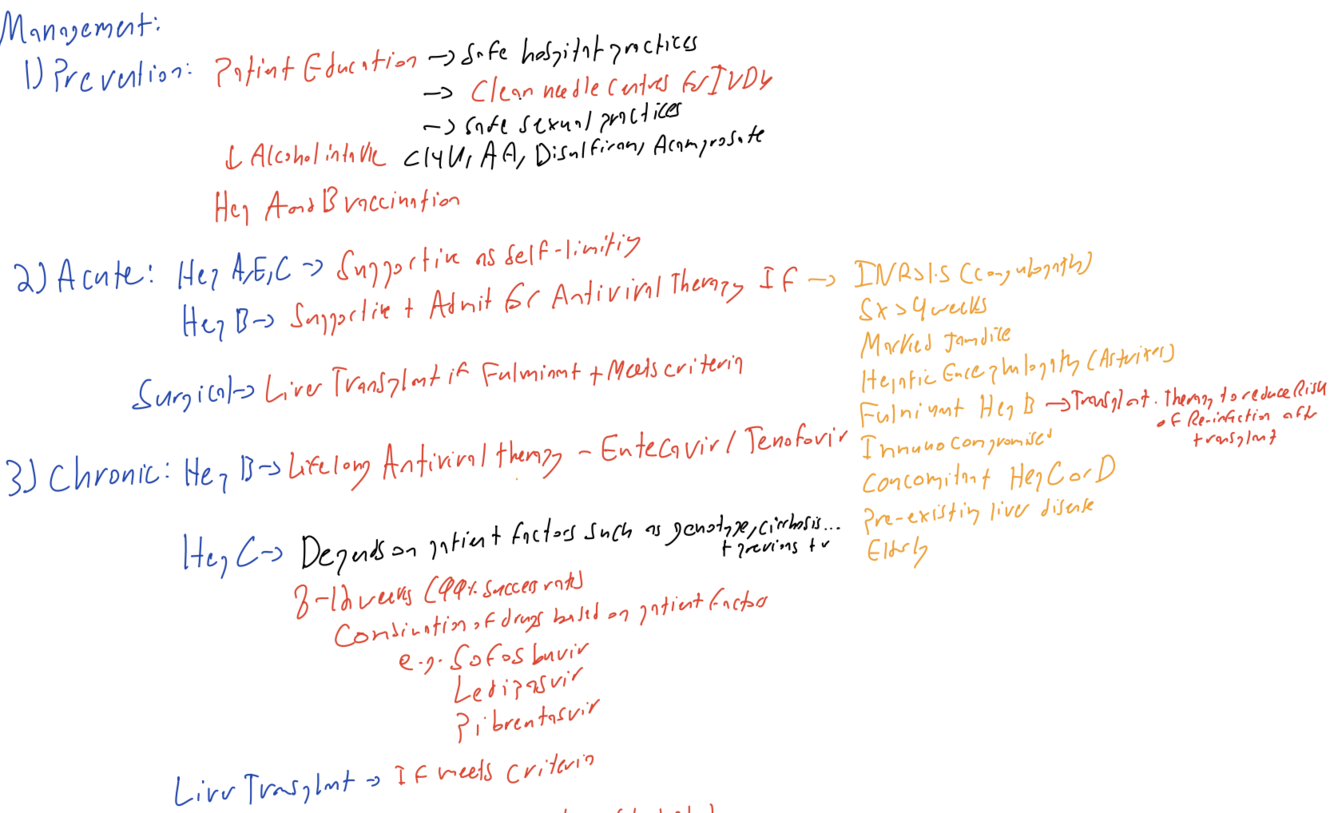 Management:
1) Prevention: Patient Education → Safe hospital practices
→ Clean needle Centres for IVDU
→ Safe sexual practices
↓ Alcohol intake AA, Disulfiram, Acamprosate
Hep A and B vaccination
2) Acute: Hep A,E,C → Supportive as Self-limitig
Hep B → Supportive + Admit for Antiviral Therapy IF →
INR>1.5 (coagulopathy)
Sx > 4 weeks
Marked Jaundice
Hepatic Encephalopathy (Asterixis)
Fulminant Hep B → Transplant. Therapy to reduce Risk
of Re-infection after
transplant
Immunocompromised
Concomitant Hep C or D
Pre-existing liver disease
Elderly
Surgical → Liver Transplant if Fulminant + Meets criteria
3) Chronic: Hep B → Lifelong Antiviral therapy - Entecavir / Tenofovir
Hep C → Depends on patient factors such as genotype, cirrhosis...
+ previous tx
8-12 weeks (99% success rate)
Combination of drugs based on patient factor
e.g. Sofosbuvir
Ledipasvir
Pibrentasvir
Liver Transplant → IF meets criteria